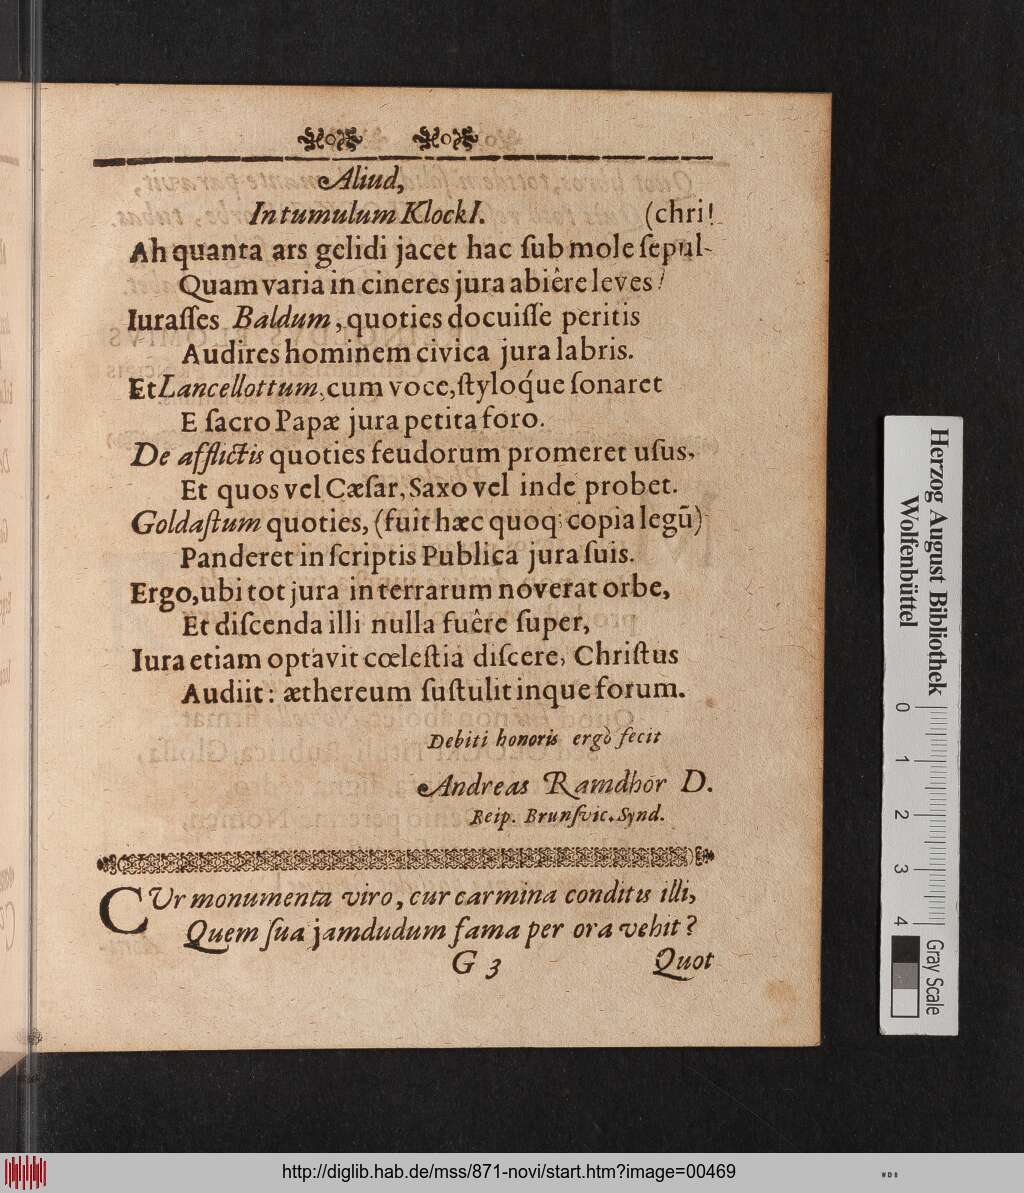 Aliud,
In tumulum KlockI. (chri!
Ah quanta ars gelidi jacet hac ſub mole ſepul-
Quam varia in cineres jura abiêre leves!
Iuraſſes Baldum, quoties docuiſſe peritis
Audires hominem civica jura labris.
Et Lancellottum, cum voce, ſtyloq́ue ſonaret
E ſacro Papæ jura petita foro.
De afflictis quoties feudorum promeret uſus,
Et quos vel Cæſar, Saxo vel inde probet.
Goldaſtum quoties, (fuit hæc quoq; copia legũ)
Panderet in ſcriptis Publica jura ſuis.
Ergo, ubi tot jura in terrarum noverat orbe,
Et diſcenda illi nulla fuêre ſuper,
Iura etiam optavit cœleſtia diſcere, Chriſtus
Audiit: æthereum ſuſtulit inque forum.
Debiti honoris ergò fecit
Andreas Ramdhor D.
Reip. Brunſvic. Synd.
CUr monumenta viro, cur carmina conditis illi,
Quem ſua jamdudum fama per ora vehit?
G 3 Quot
Herzog August Bibliothek
Wolfenbüttel
0 1 2 3 4
Gray Scale
http://diglib.hab.de/mss/871-novi/start.htm?image=00469